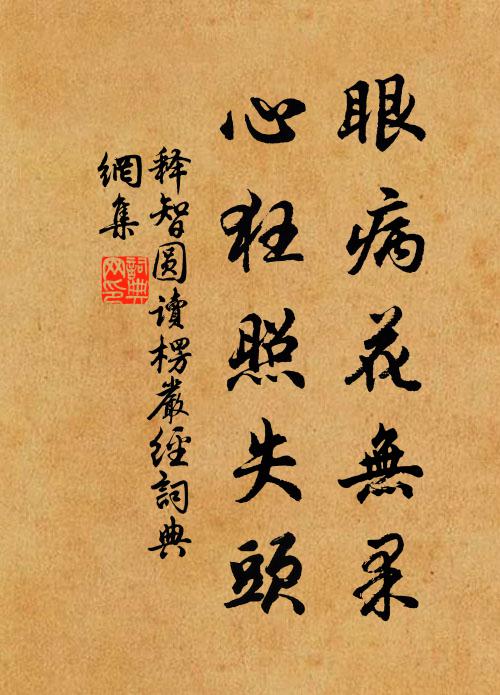 眼病花無果
心狂照失頭
释智圆讀楞嚴經詞典
網集
詞典
网印